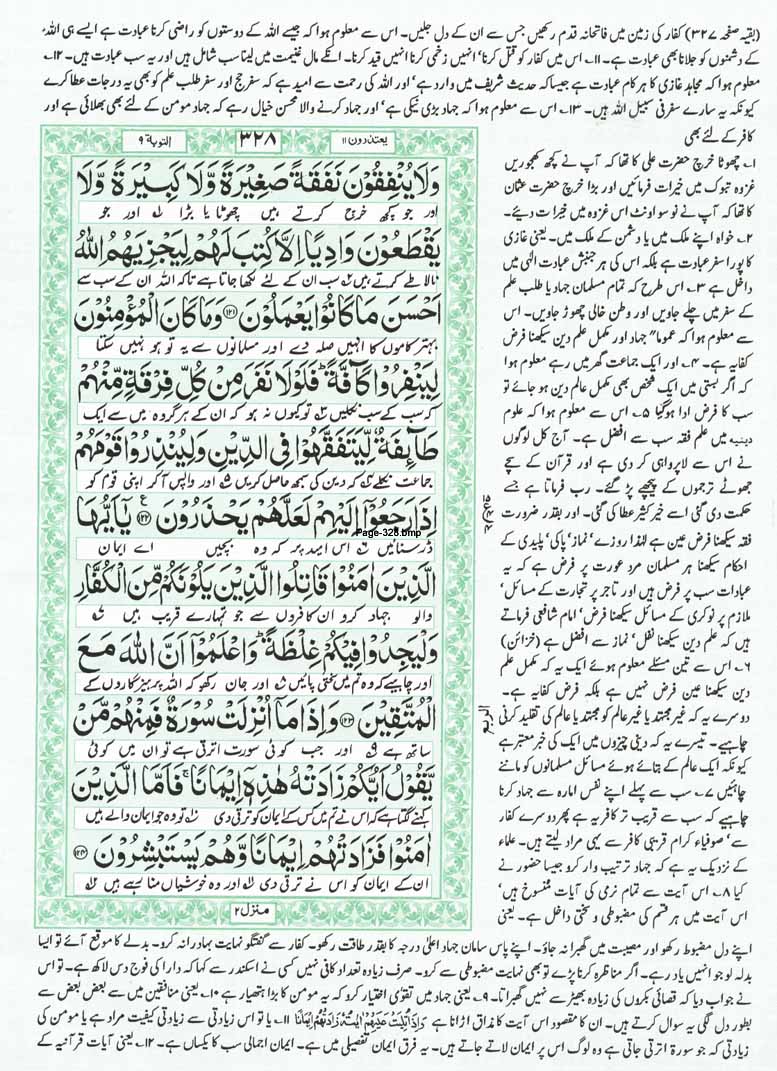 (بقیہ صفحہ ۳۲۷) کفار کی زمین میں فاتحانہ قدم رکھیں جس سے ان کے دل جلیں۔ اس سے معلوم ہوا کہ جیسے اللہ کے دوستوں کو راضی کرنا عبادت ہے ایسے ہی اللہ
کے دشمنوں کو جلانا بھی عبادت ہے۔ ۱۱۔ اس میں کفار کو قتل کرنا' انہیں زخمی کرنا انہیں قید کرنا۔ انکے مال غنیمت میں لینا سب شامل ہیں اور یہ سب عبادت ہیں۔ ۱۲۔
معلوم ہوا کہ مجاہد غازی کا ہر کام عبادت ہے جیساکہ حدیث شریف میں وارد ہے' اور اللہ کی رحمت سے امید ہے کہ سفر حج اور سفر طلب علم کو بھی یہ درجات عطا کرے
کیونکہ یہ سارے سفر فی سبیل اللہ ہیں۔ ۱۳۔ اس سے معلوم ہوا کہ جہاد بڑی نیکی ہے' اور جہاد کرنے والا محسن خیال رہے کہ جہاد مومن کے لئے بھی بھلائی ہے اور
کافر کے لئے بھی
یعتذرون ۱۱
۳۲۸
التوبة ۹
وَلَا يُنْفِقُوْنَ نَفَقَةً صَغِيْرَةً وَّلَا كَبِيْرَةً وَّلَا
اور جو کچھ خرچ کرتے ہیں چھوٹا یا بڑا اور جو
يَقْطَعُوْنَ وَادِيًا اِلَّا كُتِبَ لَهُمْ لِيَجْزِيَهُمُ اللّٰهُ
نالا طے کرتے ہیں سب ان کے لئے لکھا جاتا ہے تاکہ اللہ ان کے سب سے
اَحْسَنَ مَا كَانُوْا يَعْمَلُوْنَ ۝۱۲۱ وَمَا كَانَ الْمُؤْمِنُوْنَ
بہتر کاموں کا انہیں صلہ دے اور مسلمانوں سے یہ تو ہو نہیں سکتا
لِيَنْفِرُوْا كَآفَّةً ؕ فَلَوْلَا نَفَرَ مِنْ كُلِّ فِرْقَةٍ مِّنْهُمْ
کہ سب کے سب نکلیں تو کیوں نہ ہو کہ ان کے ہر گروہ میں سے ایک
طَآىِٕفَةٌ لِّيَتَفَقَّهُوْا فِي الدِّيْنِ وَلِيُنْذِرُوْا قَوْمَهُمْ
جماعت نکلے کہ دین کی سمجھ حاصل کریں اور واپس آکر اپنی قوم کو
اِذَا رَجَعُوْٓا اِلَيْهِمْ لَعَلَّهُمْ يَحْذَرُوْنَ ۝۱۲۲ يٰٓاَيُّهَا
ڈر سنائیں اس امید پر کہ وہ بچیں اے ایمان
Page-328.bmp
الَّذِيْنَ اٰمَنُوْا قَاتِلُوا الَّذِيْنَ يَلُوْنَكُمْ مِّنَ الْكُفَّارِ
والو جہاد کرو ان کافروں سے جو تمہارے قریب ہیں
وَلْيَجِدُوْا فِيْكُمْ غِلْظَةً ؕ وَاعْلَمُوْٓا اَنَّ اللّٰهَ مَعَ
اور چاہیے کہ وہ تم میں سختی پائیں اور جان رکھو کہ اللہ پرہیزگاروں کے
الْمُتَّقِيْنَ ۝۱۲۳ وَاِذَا مَآ اُنْزِلَتْ سُوْرَةٌ فَمِنْهُمْ مَّنْ
ساتھ ہے اور جب کوئی سورت اترتی ہے تو ان میں کوئی
يَّقُوْلُ اَيُّكُمْ زَادَتْهُ هٰذِهٖٓ اِيْمَانًا ۚ فَاَمَّا الَّذِيْنَ
کہنے لگتا ہے کہ اس نے تم میں کس کے ایمان کو ترقی دی تو وہ جو ایمان والے ہیں
اٰمَنُوْا فَزَادَتْهُمْ اِيْمَانًا وَّهُمْ يَسْتَبْشِرُوْنَ ۝۱۲۴
ان کے ایمان کو اس نے ترقی دی اور وہ خوشیاں منا رہے ہیں
منزل ۲
۱۔ چھوٹا خرچ حضرت علی کا تھا کہ آپ نے کچھ کھجوریں
غزوہ تبوک میں خیرات فرمائیں اور بڑا خرچ حضرت عثمان
کا تھا کہ آپ نے نو سو اونٹ اس غزوہ میں خیرات دیئے۔
۲۔ خواہ اپنے ملک میں یا دشمن کے ملک میں۔ یعنی غازی
کا پورا سفر عبادت ہے بلکہ اس کی ہر جنبش عبادت الٰہی میں
داخل ہے ۳۔ اس طرح کہ تمام مسلمان جہاد یا طلب علم
کے سفر میں چلے جاویں اور وطن خالی چھوڑ جاویں۔ اس
سے معلوم ہوا کہ عموما" جہاد اور مکمل علم دین سیکھنا فرض
کفایہ ہے۔ ۴۔ اور ایک جماعت گھر میں رہے معلوم ہوا
کہ اگر بستی میں ایک شخص بھی مکمل عالم دین ہو جائے تو
سب کا فرض ادا ہوگیا ۵۔ اس سے معلوم ہوا کہ علوم
دینیہ میں علم فقہ سب سے افضل ہے۔ آج کل لوگوں
نے اس سے لاپرواہی کر دی ہے اور قرآن کے بچے
جھوٹے ترجموں کے پیچھے پڑ گئے۔ رب فرماتا ہے جسے
حکمت دی گئی اسے خیر کثیر عطا کی گئی۔ اور بقدر ضرورت
فقہ سیکھنا فرض عین ہے لہٰذا روزے' نماز' پاکی' پلیدی کے
احکام سیکھنا ہر مسلمان مرد عورت پر فرض ہے کہ یہ
عبادات سب پر فرض ہیں اور تاجر پر تجارت کے مسائل'
ملازم پر نوکری کے مسائل سیکھنا فرض' امام شافعی فرماتے
ہیں کہ علم دین سیکھنا نفل' نماز سے افضل ہے (خزائن)
۶۔ اس سے تین مسئلے معلوم ہوئے ایک یہ کہ مکمل علم
دین سیکھنا عین فرض نہیں ہے بلکہ فرض کفایہ ہے۔
دوسرے یہ کہ غیر مجتہد یا غیر عالم کو مجتہد یا عالم کی تقلید کرنی
چاہیے۔ تیسرے یہ کہ دینی چیزوں میں ایک کی خبر معتبر ہے
کیونکہ ایک عالم کے بتائے ہوئے مسائل مسلمانوں کو ماننے
چاہئیں ۷۔ سب سے پہلے اپنے نفس امارہ سے جہاد کرنا
چاہیے کہ سب سے قریب تر کافر یہ ہے پھر دوسرے کفار
سے' صوفیاء کرام قریبی کافر سے یہی مراد لیتے ہیں۔ علماء
کے نزدیک یہ ہے کہ جہاد ترتیب وار کرو جیسا حضور نے
کیا ۸۔ اس آیت سے تمام نرمی کی آیات منسوخ ہیں'
اس آیت میں ہر قسم کی مضبوطی و سختی داخل ہے۔ یعنی
الربع
اپنے دل مضبوط رکھو اور مصیبت میں گھبرا نہ جاؤ۔ اپنے پاس سامان جہاد اعلیٰ درجہ کا بقدر طاقت رکھو۔ کفار سے گفتگو نہایت بہادرانہ کرو۔ بدلے کا موقع آئے تو ایسا
بدلہ لو جو انہیں یاد رہے۔ اگر مناظرہ کرنا پڑے تو بھی نہایت مضبوطی سے کرو۔ صرف زیادہ تعداد کافی نہیں کسی نے اسکندر سے کہا کہ دارا کی فوج دس لاکھ ہے۔ تو اس
نے جواب دیا کہ قصائی بکروں کی زیادہ بھیڑ سے نہیں گھبراتا۔ ۹۔ یعنی جہاد میں تقوٰی اختیار کرو کہ یہ مومن کا بڑا ہتھیار ہے ۱۰۔ یعنی منافقین میں سے بعض بعض سے
بطور دل لگی یہ سوال کرتے ہیں۔ ان کا مقصود اس آیت کا مذاق اڑانا ہے وَاِذَا تُلِيَتْ عَلَيْهِمْ اٰيٰتُهٗ زَادَتْهُمْ اِيْمَانًا ۱۱۔ یا تو اس زیادتی سے زیادتی کیفیت مراد ہے یا مومن کی
زیادتی کہ جو سورۃ اترتی جاتی ہے وہ لوگ اس پر ایمان لاتے جاتے ہیں۔ یہ فرق ایمان تفصیلی میں ہے۔ ایمان اجمالی سب کا یکساں ہے۔ ۱۲۔ یعنی آیات قرآنیہ کے